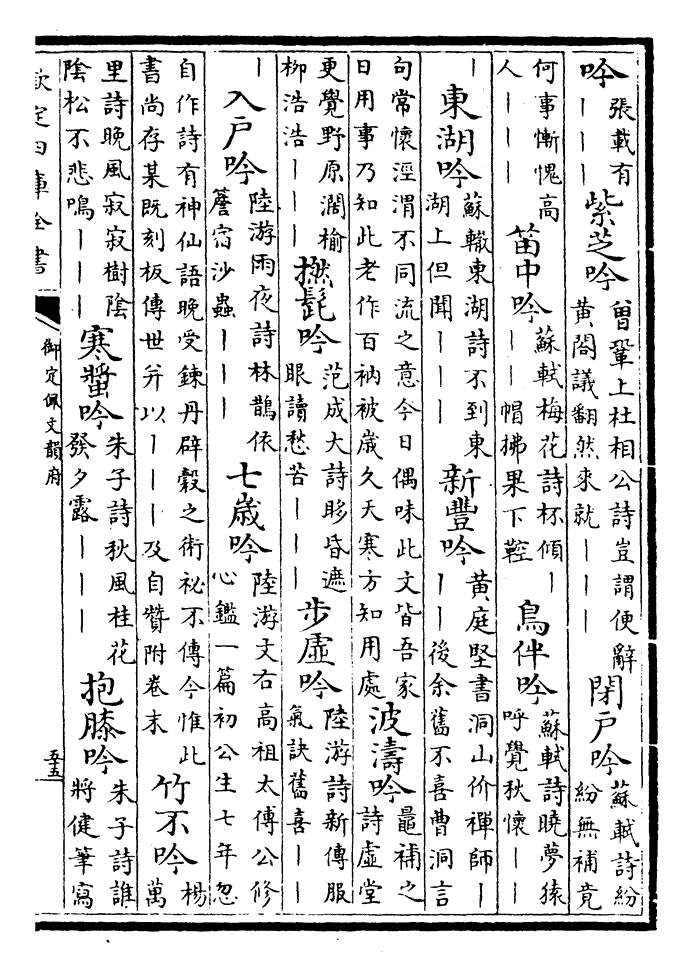 吟張載有｜｜｜紫芝吟曾鞏上杜相公詩豈謂便辭黃閣議翻然來就｜｜｜閉戶吟蘇軾詩紛紛無補竟
何事慚愧高人｜｜｜笛中吟蘇軾梅花詩杯傾｜｜｜帽拂果下鞚鳥伴吟蘇軾詩曉夢猿呼覺秋懷｜｜
｜東湖吟蘇轍東湖詩不到東湖上但聞｜｜｜新豐吟黃庭堅書洞山价禪師｜｜｜後余舊不喜曹洞言
句常懷涇渭不同流之意今日偶味此文皆吾家日用事乃知此老作百衲被歲久天寒方知用處波濤吟鼂補之詩虛堂
更覺野原濶榆柳浩浩｜｜｜撚髭吟范成大詩眵昏遮眼讀愁苦｜｜｜步虛吟陸游詩新傳服氣訣舊喜｜｜
｜入戶吟陸游雨夜詩林鵲依簷宿沙蟲｜｜｜七歲吟陸游文右高祖太傅公修心鑑一篇初公生七年忽
自作詩有神仙語晚受鍊丹辟穀之術祕不傳今惟此書尚存某既刻板傳世并以｜｜｜及自贊附卷末竹不吟楊萬
里詩晚風寂寂樹陰陰松不悲鳴｜｜｜寒螿吟朱子詩秋風桂花發夕露｜｜｜抱膝吟朱子詩誰將健筆寫
欽定四庫全書
御定佩文韻府
五五